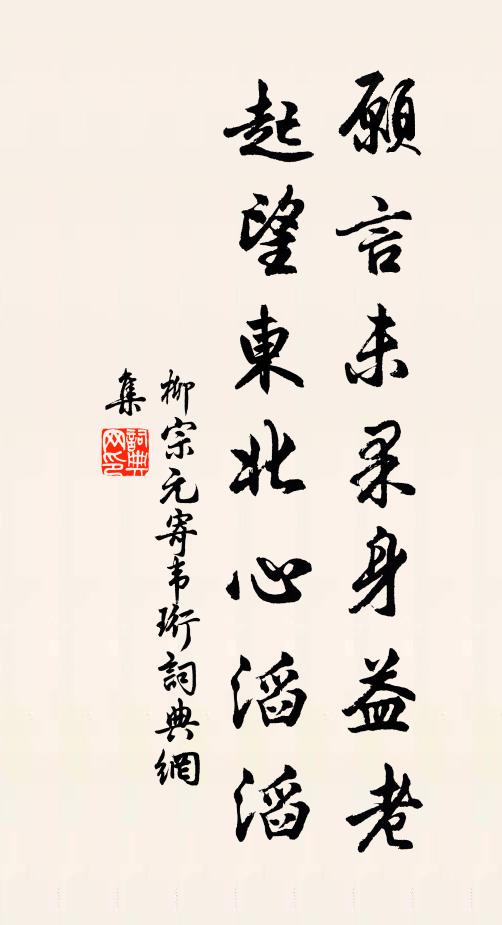 願言未果身益老
起望東北心滔滔
柳宗元寄韦珩詞典網
集
詞典网印